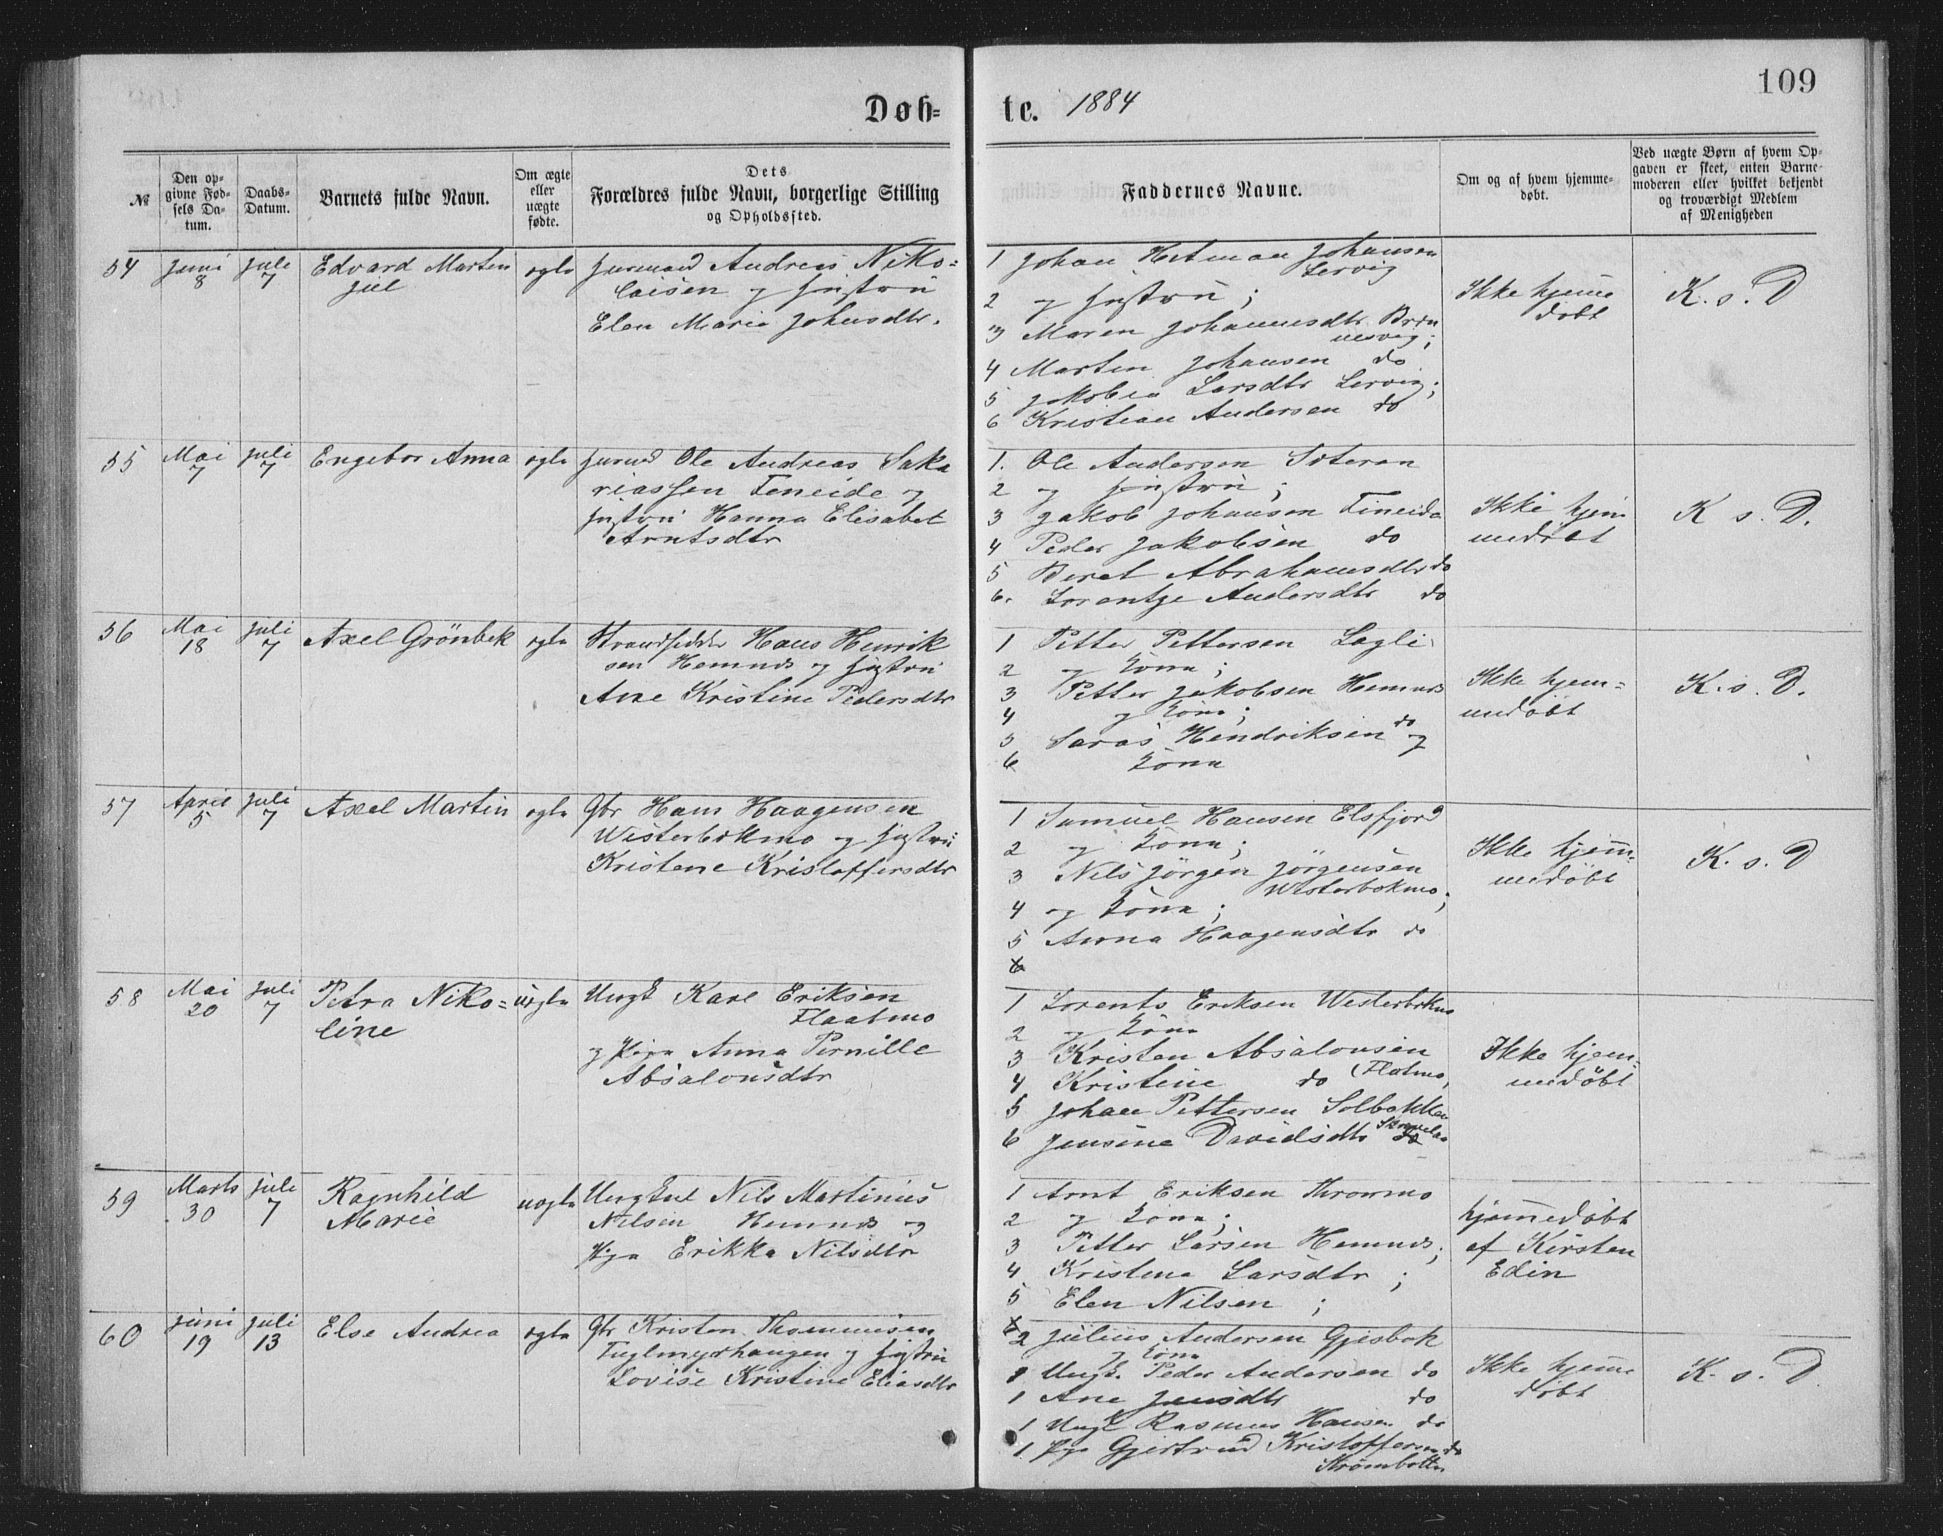 109
Døb= te. 1884
№
Den opgivne Fødsels Datum.
Daabs-Datum.
Barnets fulde Navn.
Om ægte eller uægte fødte.
Dets Forældres fulde Navn, borgerlige Stilling og Opholdssted.
Faddernes Navne.
Om og af hvem hjemmedøbt.
Ved uægte Børn af hvem Opgaven er skeet, enten Barnemoderen eller hvilket bekjendt og troværdigt Medlem af Menigheden
54 Juni 8 Juli 7 Edvard Marten
Jul
Andreas Niko=
laisen og Hustru
Elen Marie Johnsdtr.
1 Johan Hetman Johansen
Lervig
2 og Hustru ;
3 Maren Johannesdtr
4 Marten Johansen do
5 Jakobea Larsdtr Lervig ;
6 Kristian Andersen do
Ikke hjemme
døbt
K. s. D
55 Mai 7 Juli 7 Engebor Anna
Ole Andreas Saka
riassen Feneide og
Hustru Hanna Elisabet
Arntsdtr
1. Ole Andersen Sæteren
2 og Hustru ;
3 Jakob Johansen Fineide
4 Peder Jakobsen do
5 Beret Abrahamsdtr do
6. Lorentze Andersdtr do
Ikke hjem
medøbt
K s. D.
56 Mai 18 Juli 7 Axel Grönbek
Strandsidder Hans Henrik
sen Hemnes og Hustru
Ane Kristine Pedersdtr
1 Petter Pettersen Lagli
2 og Kona ;
3 Petter Jakobsen Hemnes
4 og Kona ;
5 Saras Hendriksen do og
6 Kona
Ikke hjem=
medøbt
K. s. D.
57 April 5 Juli 7 Axel Martin
Gbr Hans Haagensen
Westerbekmo og Hustru
Kristene Kristoffersdtr
1 Samuel Hansen Elsfjord
2 og Kona ;
3 Nils Jörgen Jörgensen
Westerbekmo ;
4 og Kona ;
5 Anna Haagensdtr do
6
Ikke hjem=
medøbt
K. s. D
58 Mai 20 Juli 7 Petra Niko=
line
uegte
Ungk Karl Eriksen
Flaatmo
og Pige Anna Pernille
Absalonsdtr
1 Lorents Eriksen Westerbekmo
2 og Kona
3 Kristen Absalonsen
4 Kristine do Flatmo,
5 Johan Pettersen Solbakken
6 Jensine Davidsdtr
Ikke hjem=
medøbt
59 Marts 30 Juli 7 Ragnhild
Marie
uegte
Ungkal Nils Martinus
Nilsen Hemnes og
Pige Erikka Nilsdtr
1 Arnt Eriksen Thronmo
2 og Kona ;
3 Petter Larsen Hemnes ;
4 Kristena Larsdtr ;
5 Elen Nilsen ;
6
hjemedøbt
af Kirsten
Edin
60 Juni 19 Juli 13 Else Andrea
Gbr Kristen Thommesen
Fuglmyrhaugen og Hustru
Lovise Kristine Eliasdtr
2 Julius Andersen Gjesbak
og Kona
1 Ungk. Peder Andersen do
1 Ane Jensdtr do
1 Ungk Rasmus Hansen do
1. Pige Gjertrud Kristoffersen
Strømbotten
Ikke hjemme
døbt
K. s. D